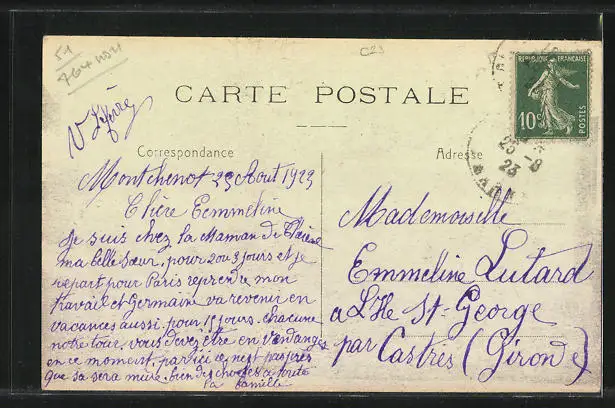 51
764 N51
C23
RÉPUBLIQUE FRANÇAISE
10c
POSTES
CARTE POSTALE
V Lefèvre
Correspondance
Adresse
25 - 8
23
MARNE
Montchenot 23 Aout 1923
Chère Eemmeline
Je suis chez la Maman de Claire
ma belle Sœur, pour 2 ou 3 jours et je
repart pour Paris reprendre mon
travail et Germaine va revenir en
vacances aussi pour 15 jours chacune
notre tour, vous devez être en Vendanges
en ce moment, par ici ce n'est pas près
que sa sera mûre, bien des choses à toute
la famille
Mademoiselle
Emmeline Lutard
a L'Hle St-George
par Castres (Gironde)